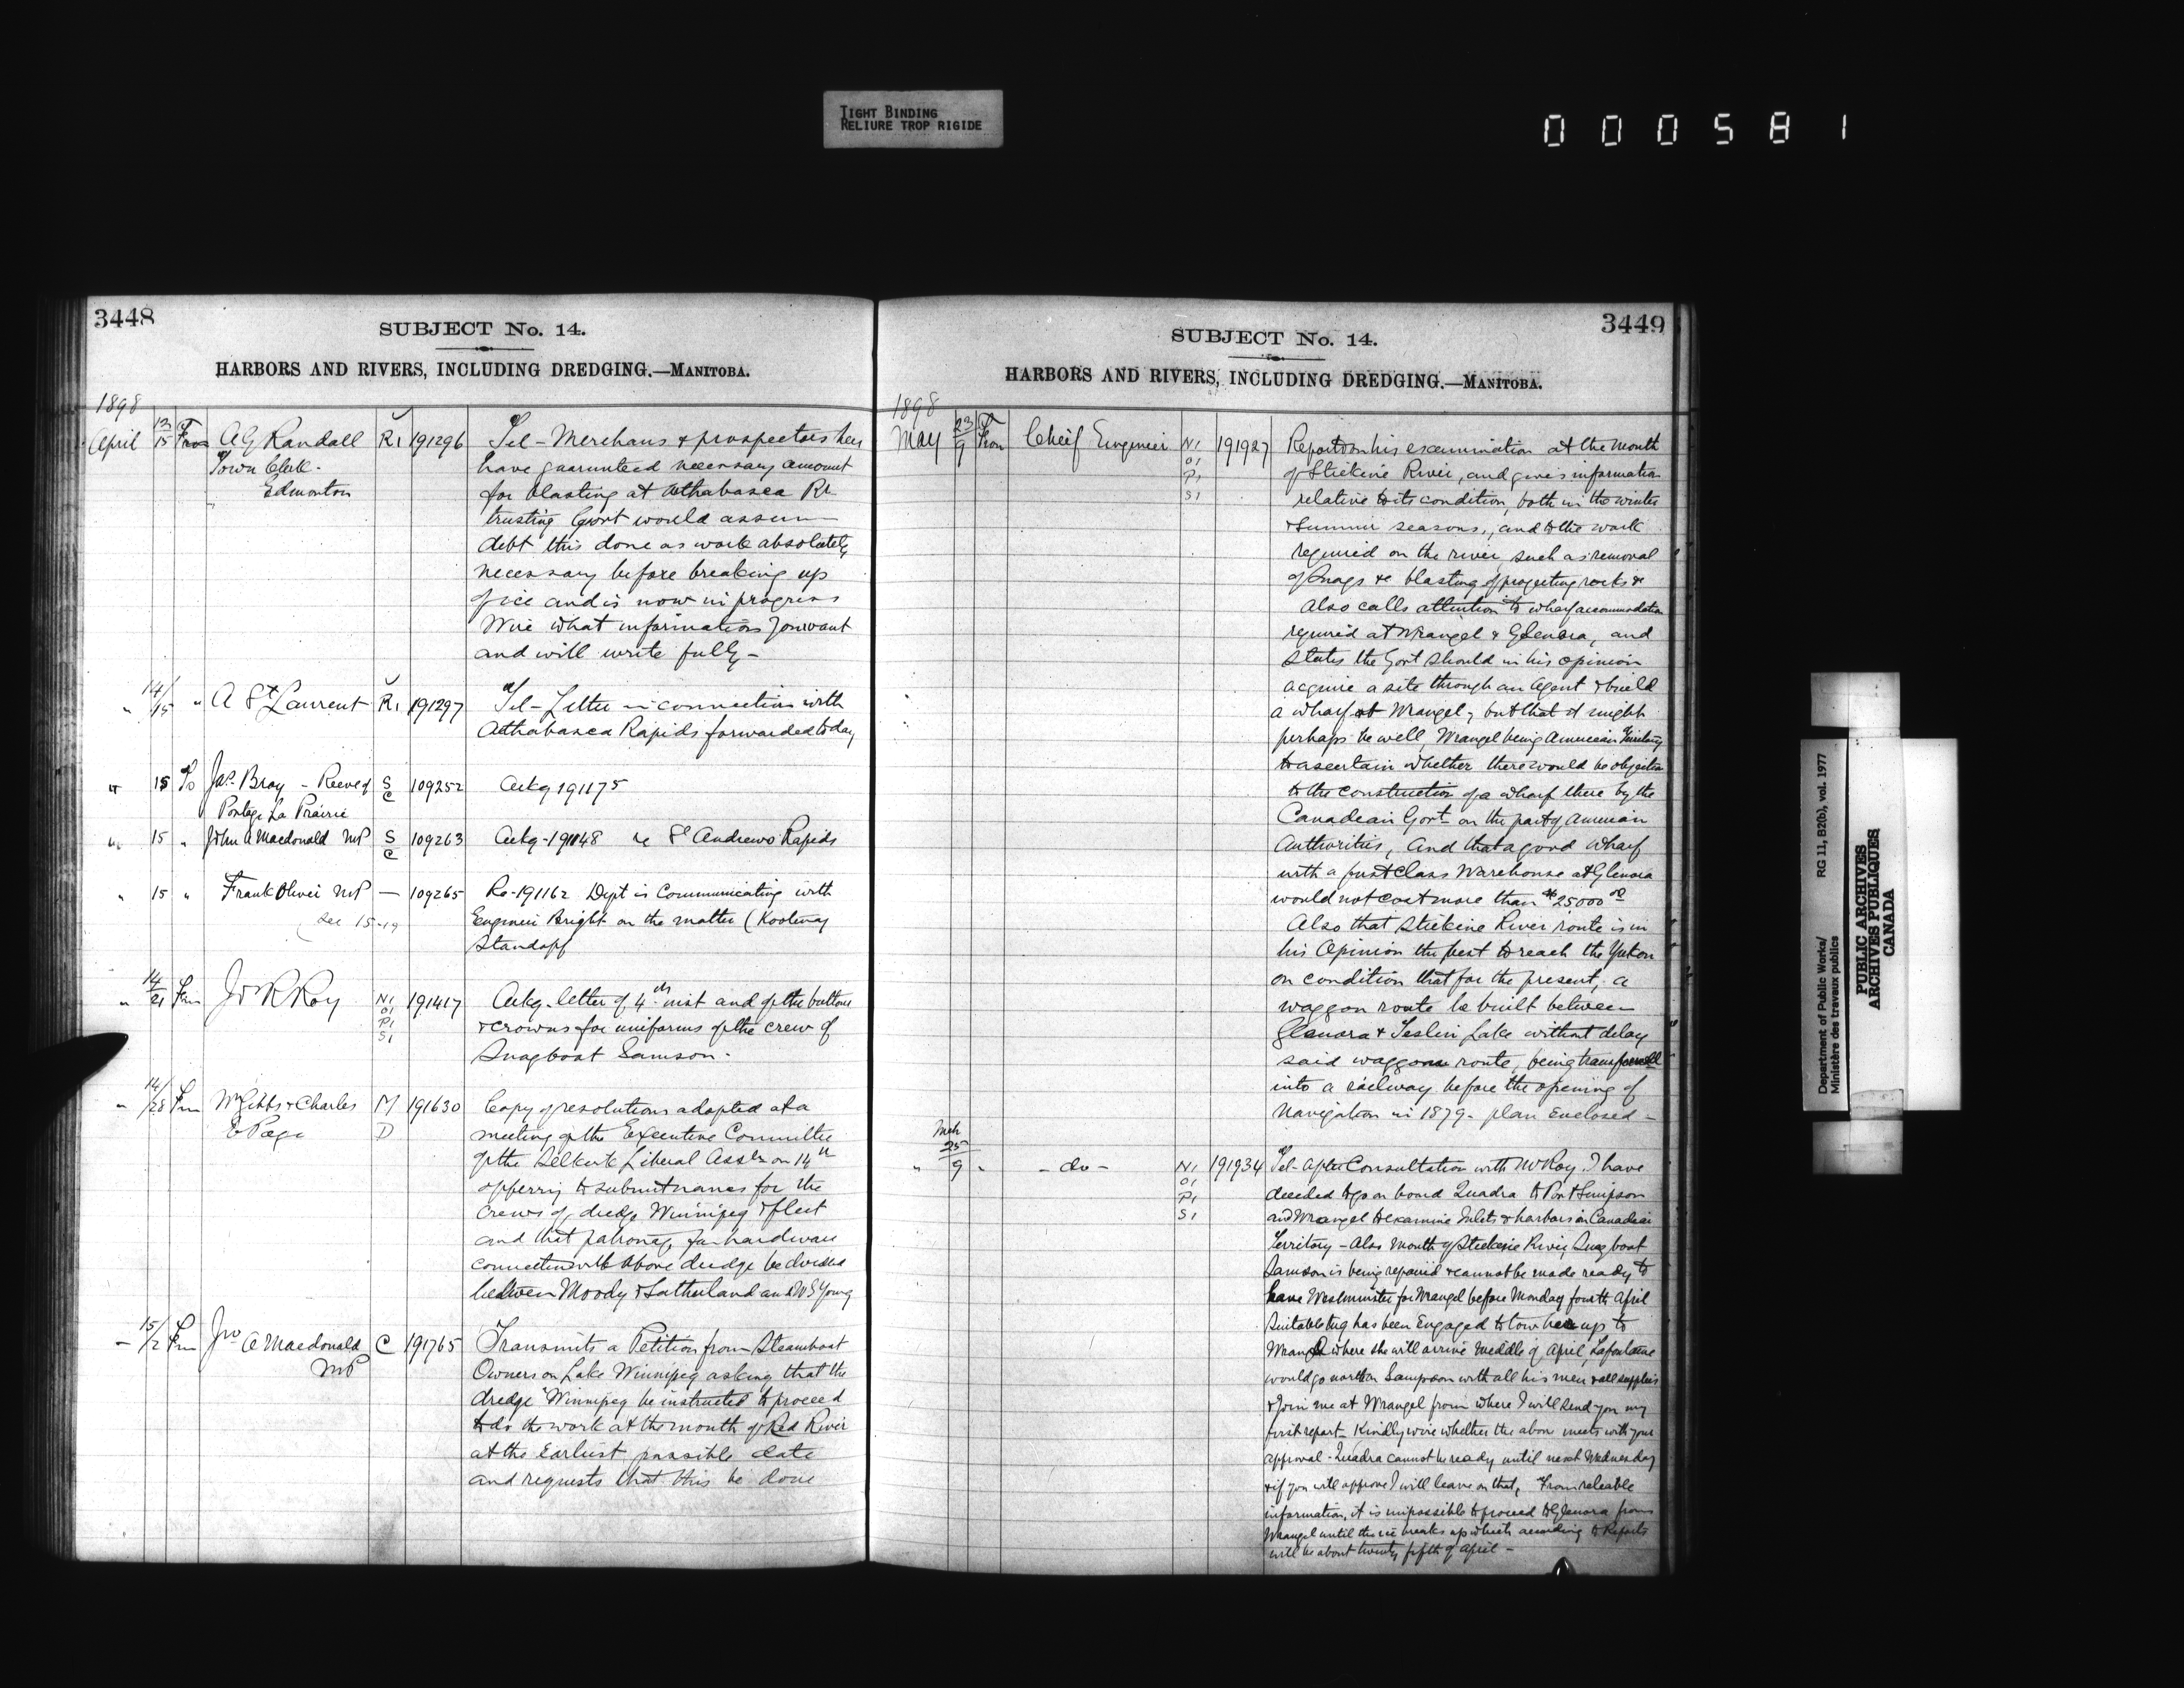 TIGHT BINDING
RELIURE TROP RIGIDE
000581
3448
SUBJECT No. 14.
HARBORS AND RIVERS, INCLUDING DREDGING.—MANITOBA.
1898
April 13/15 From A G Randall R1 191296 Tel - Merchans & prospectors here
Town Clerk. have guarunteed necessary amount
Edmonton for blasting at Athabasca Rr
trusting Govt would assum
debt this done as work absolutely
necessary before breaking up
of ice and is now in progress
Wire what information you want
and will write fully -
" 14/15 " A St Laurent R1 191297 Tel - Letter in connection with
Athabasca Rapids forwarded today
" 15 To Jas. Bray - Reeve of S C 109252 Ackg 191175
Portage La Prairie
" 15 " John A Macdonald MP S C 109263 Ackg - 191148 re St Andrews Rapids
" 15 " Frank Oliver MP — 109265 Re - 191162 Dept is Communicating with
(See 15-19 Engineer Bright on the matter (Kootenay
Standoff
" 14/21 From J R Roy N1 O1 P1 S1 191417 Ackg. letter of 4th inst and of the buttons
& crowns for uniforms of the crew of
Snagboat Samson -
" 14/28 From W Gibbs & Charles M D 191630 Copy of resolutions adopted at a
E Page meeting of the Executive Committee
of the Selkirk Liberal Assn on 14th
offering to submit names for the
crews of dredge Winnipeg & fleet
and that patronage for hardware
connection with above dredge be divided
between Moody & Sutherland and W S Young
— 15/2 From Jno A Macdonald C 191765 Transmits a Petition from Steamboat
MP Owners on Lake Winnipeg asking that the
dredge "Winnipeg be instructed to proceed
to do the work at the mouth of Red River
at the Earliest possible date
and requests that this be done
3449
SUBJECT No. 14.
HARBORS AND RIVERS, INCLUDING DREDGING.—MANITOBA.
1898
May 23/9 From Cheif Engineer N1 O1 P1 S1 191927 Report on his examination at the mouth
of Stickine River, and gives information
relative to its condition, both in the winter
& Summer seasons, and to the work
required on the river, such as removal
of Snags & blasting of projecting rocks &
Also calls attention to wharf accommodation
required at Wrangel & Glenora, and
states the Govt should in his opinion
acquire a site through an Agent & build
a wharf at Wrangel, but that it might
perhaps be well, Wrangel being American Territory
to ascertain whether there would be objection
to the construction of a wharf there by the
Canadian Govt on the part of American
Authorities, And that a good wharf
with a first Class Warehouse at Glenora
would not cost more than $25000 00
Also that Stickine River route is in
his Opinion the best to reach the Yukon
on condition that for the present, a
waggon route be built between
Glenora & Teslin Lake without delay
said waggon route, being transformed
into a railway before the opening of
Navigation in 1879 - plan Enclosed -
Mch
" 25/9 " - do - N1 O1 P1 S1 191934 Tel - After Consultation with Mr Roy I have
decided to go on board Quadra to Port Simpson
and Wrangel to examine Inlets & harbors in Canadian
Territory - Also Mouth of Stickine River, Snag boat
Samson is being repaired & cannot be made ready to
leave Westminster for Wrangel before Monday fourth April
Suitable tug has been Engaged to tow her up to
Wrangel where she will arrive middle of April, Lafontaine
would go north on Sampson with all his men & all supplies
& join me at Wrangel from where I will send you my
first report - Kindly wire whether the above meets with your
approval - Quadra cannot be ready until next Wednesday
& if you will approve I will leave on that, From reliable
information, it is impossible to proceed to Glenora from
Wrangel until the ice breaks up which according to Reports
will be about twenty fifth of April -
Department of Public Works/
Ministère des travaux publics
RG 11, B2(b), vol. 1977
PUBLIC ARCHIVES
ARCHIVES PUBLIQUES
CANADA